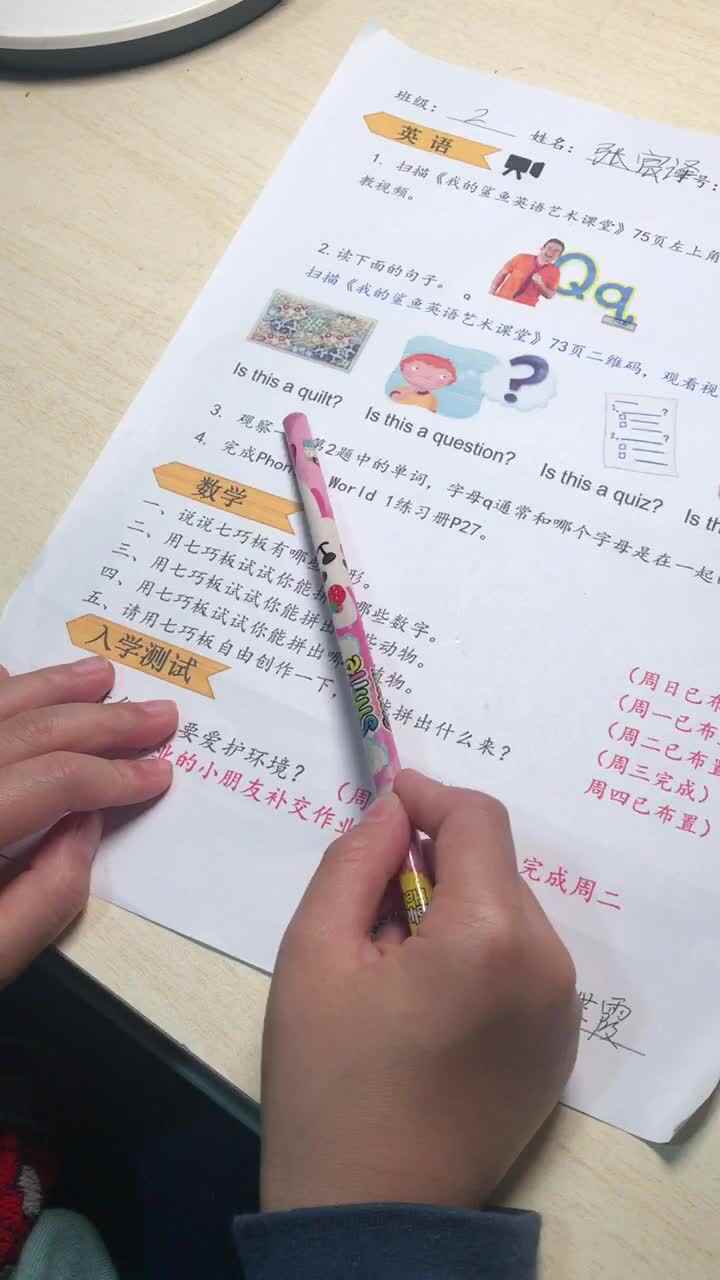 班级： 2 姓名： 张宸译 号：
英语
1. 扫描《我的鲨鱼英语艺术课堂》75页左上角
教视频。
Qq
2. 读下面的句子。 q
扫描《我的鲨鱼英语艺术课堂》73页二维码，观看视
Is this a quilt? Is this a question? Is this a quiz? Is th
3. 观察 第2题中的单词，字母q通常和哪个字母是在一起
4. 完成Phon World 1练习册P27。
数学
一、说说七巧板有哪些 形。
二、用七巧板试试你能拼 哪些数字。 （周日已布
三、用七巧板试试你能拼出 些动物。 （周一已布
四、用七巧板试试你能拼出哪 植物。 （周二已布置
五、请用七巧板自由创作一下， 能拼出什么来？ （周三完成）
周四已布置）
入学测试
要爱护环境？ （周
业的小朋友补交作业 完成周二
霞